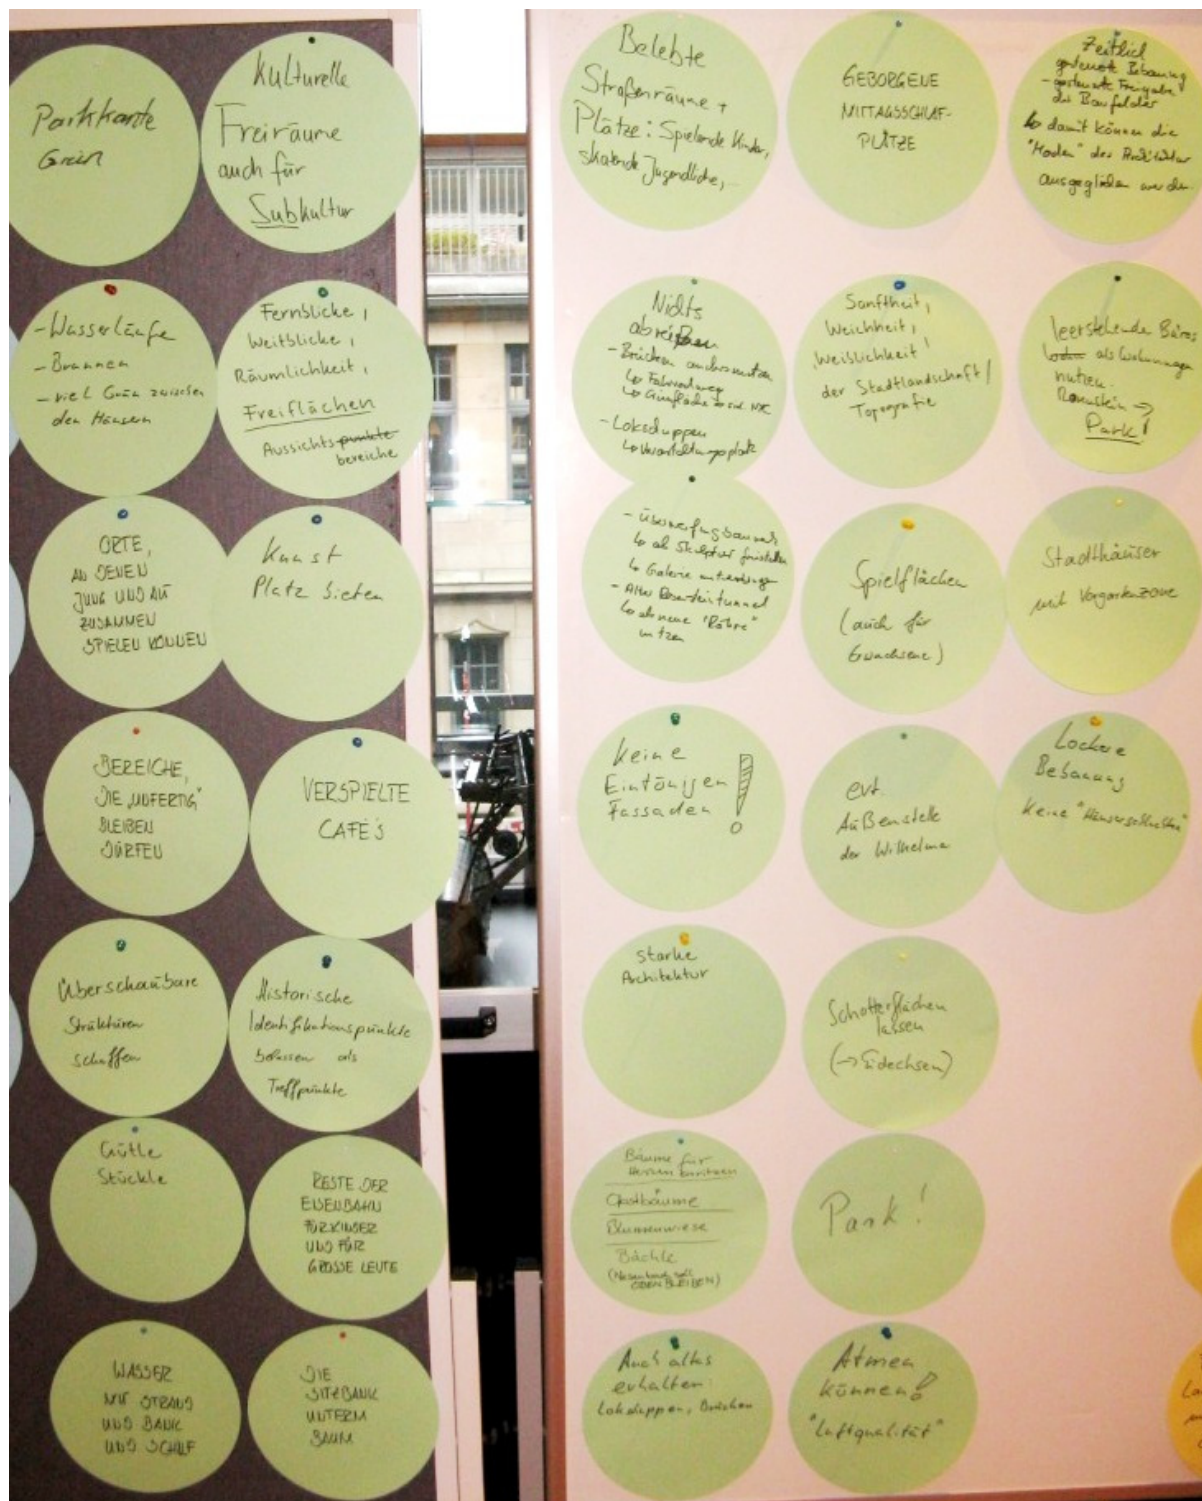 Parkkante
Grün
Kulturelle
Freiräume
auch für
Subkultur
- Wasserläufe
- Brunnen
- viel Grün zwischen
den Häusern
Fernblicke,
Weitblicke,
Räumlichkeit,
Freiflächen
Aussichtspunkte
bereiche
ORTE,
AN DENEN
JUNG UND ALT
ZUSAMMEN
SPIELEN KÖNNEN
Kunst
Platz bieten
BEREICHE,
DIE „UNFERTIG"
BLEIBEN
DÜRFEN
VERSPIELTE
CAFÉ'S
Überschaubare
Strukturen
schaffen
Historische
Identifikationspunkte
belassen als
Treffpunkte
Gütle
Stückle
RESTE DER
EISENBAHN
FÜR KINDER
UND FÜR
GROSSE LEUTE
WASSER
MIT STRAND
UND BANK
UND SCHILF
DIE
SITZBANK
UNTERM
BAUM
Belebte
Straßenräume +
Plätze: Spielende Kinder,
skatende Jugendliche,...
Nichts
abreißen
- Brücken anders nutzen
↳ Fahrradweg
↳ Grünfläche
- Lokschuppen
↳ Veranstaltungsplatz
- Überwerfungsbauwerk
↳ als Skulptur
↳ Galerie
- Alter Rosensteintunnel
↳ als neue "Röhre"
nutzen
Keine
Eintönigen
Fassaden !
starke
Architektur
Bäume für
Obstbäume
Blumenwiese
Bächle
(Nesenbach soll
OBEN BLEIBEN)
Auch altes
erhalten:
Lokschuppen, Brücken
GEBORGENE
MITTAGSSCHLAF-
PLÄTZE
Sanftheit,
Weichheit,
Weiblichkeit,
der Stadtlandschaft/
Topografie
Spielflächen
(auch für
Erwachsene)
evt.
Außenstelle
der Wilhelma
Schotterflächen
lassen
(→ Eidechsen)
Park!
Atmen
können!
"Luftqualität"
Zeitlich
gesteuerte Bebauung
- gesteuerte Freigabe
der Baufelder
↳ damit können die
"Moden" der Architektur
ausgeglichen werden
leerstehende Büros
als Wohnungen
nutzen.
Rosenstein →
Park!
Stadthäuser
mit Vorgartenzone
Lockere
Bebauung
Keine "Häuserschluchten"